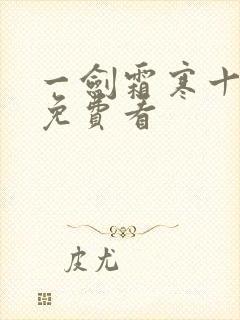 一劍霜寒十
免費看
皮尤